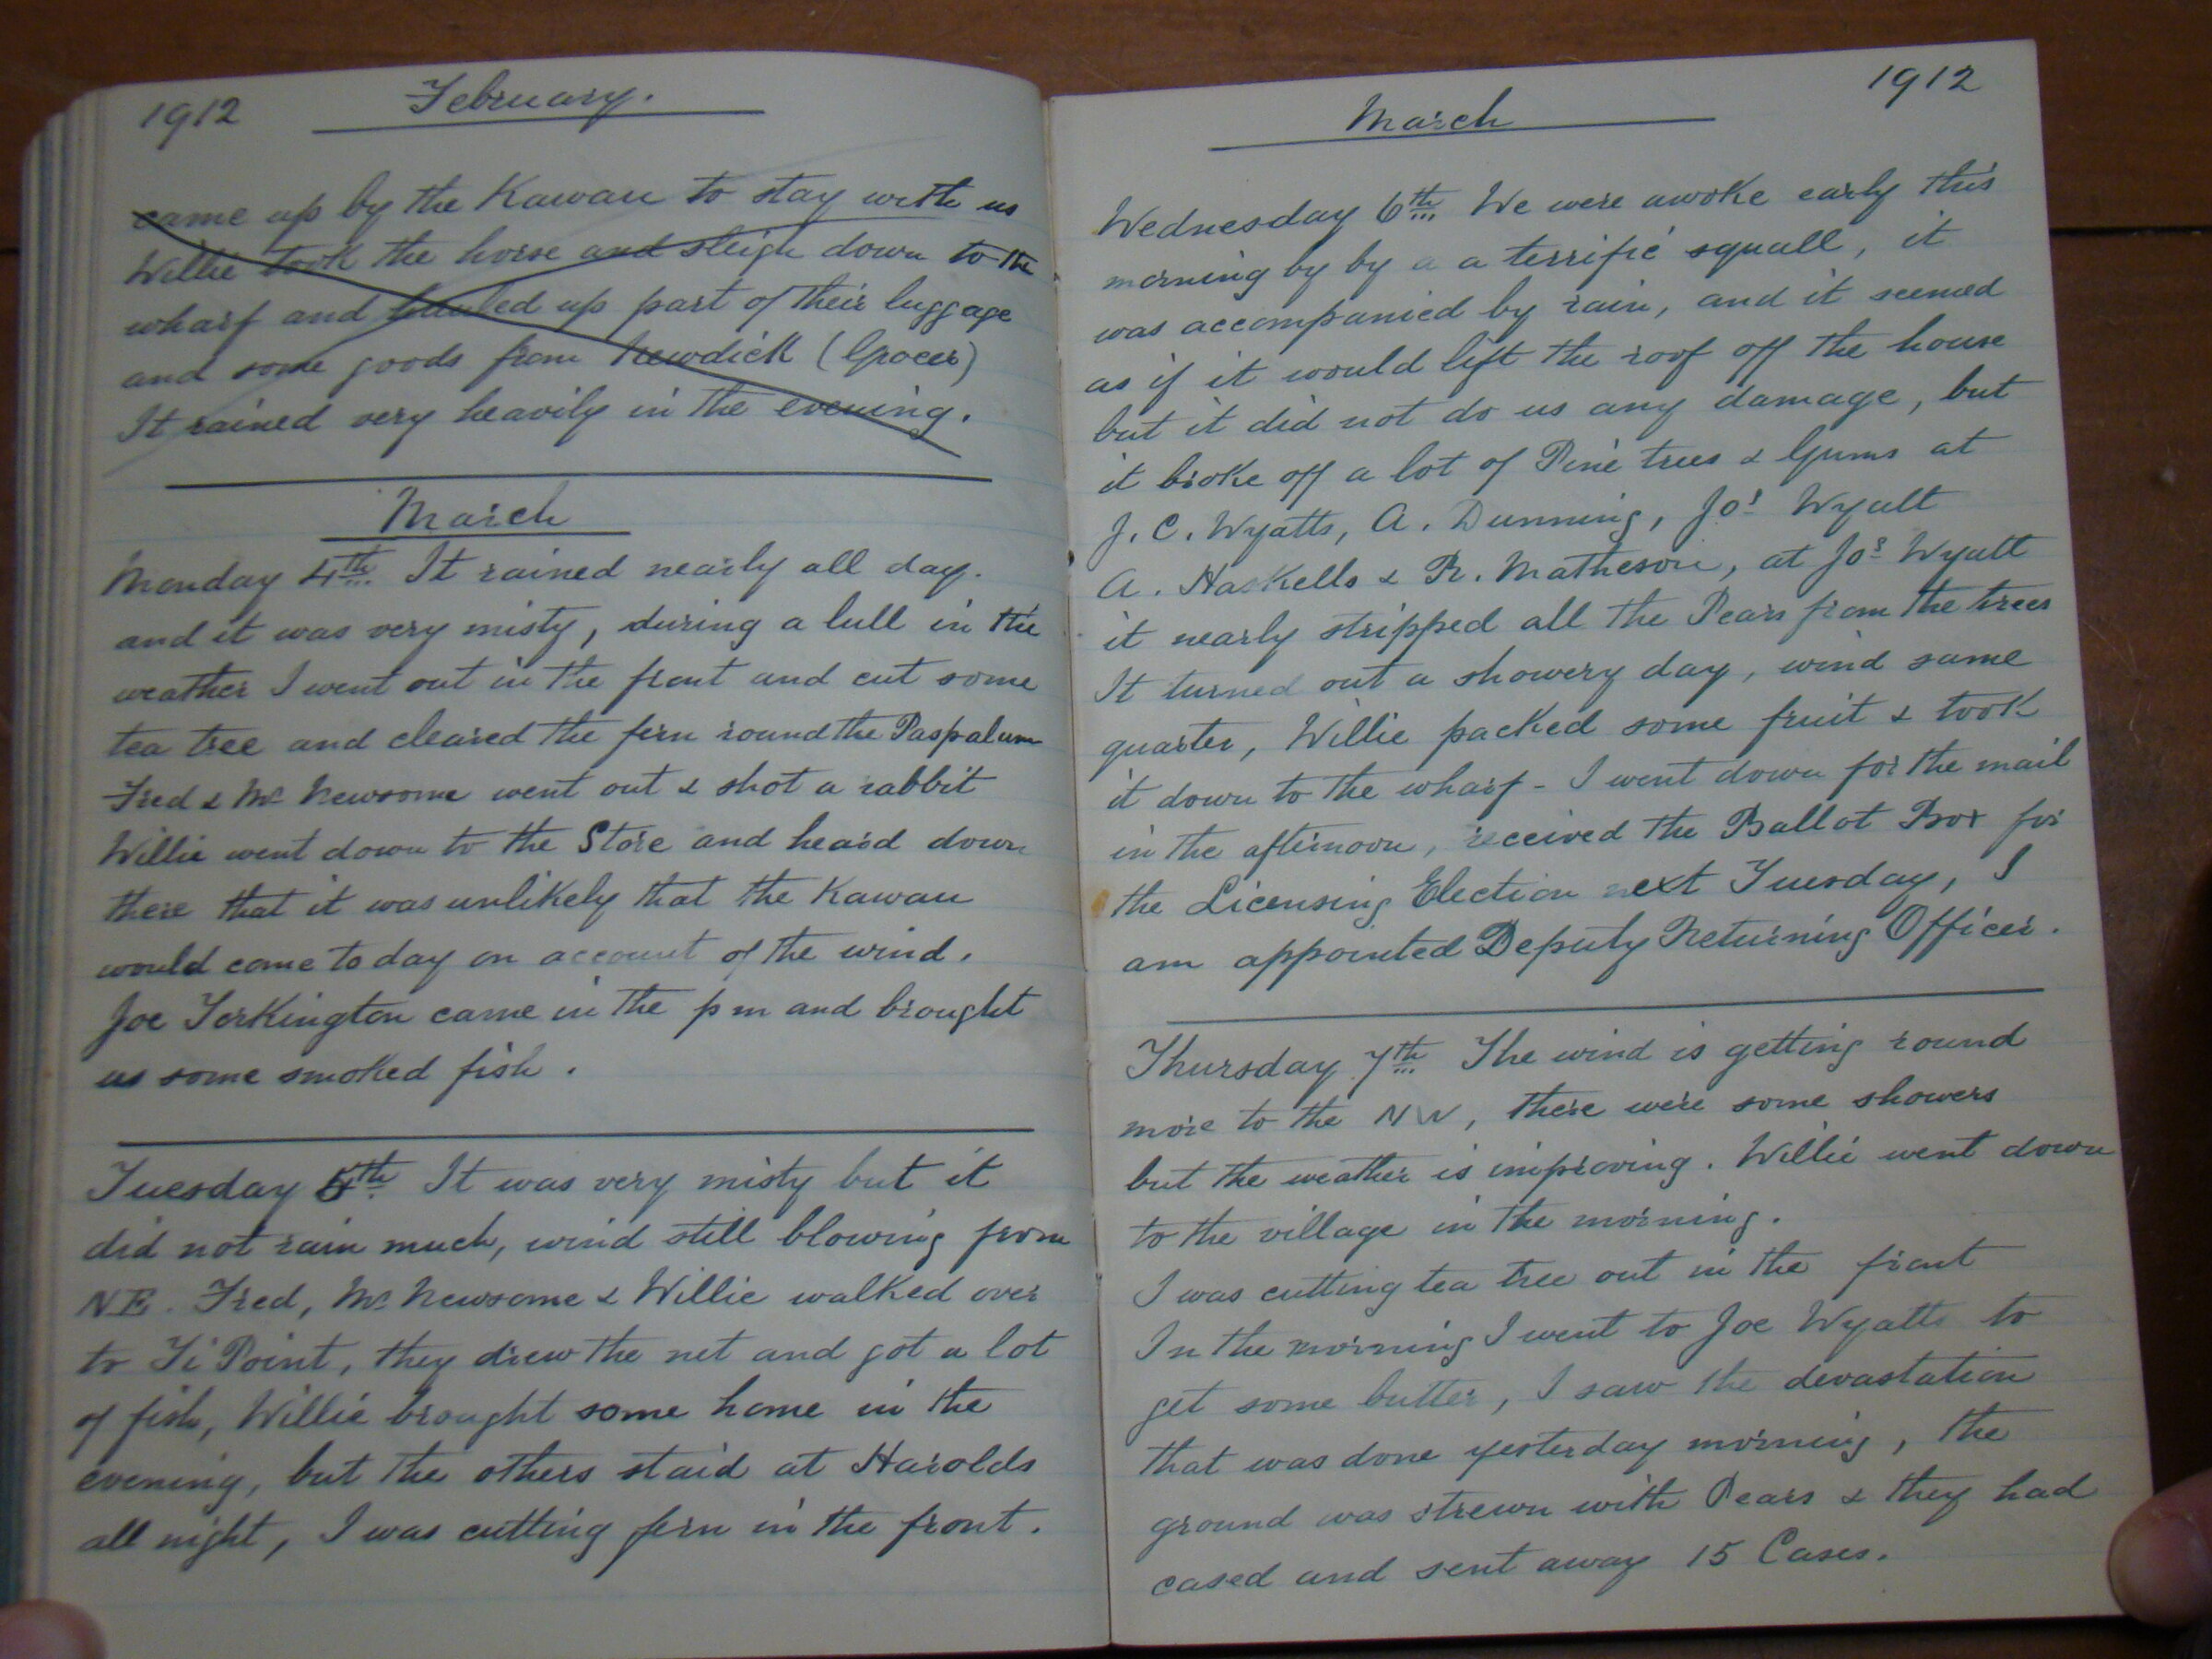 1912 February.
came up by the Kawau to stay with us
Willie took the horse and sleigh down to the
wharf and hauled up part of their luggage
and some goods from Newdick (Grocer)
It rained very heavily in the evening.
March
Monday 4th It rained nearly all day.
and it was very misty, during a lull in the
weather I went out in the front and cut some
tea tree and cleared the fern round the Paspalum
Fred & Mr Newsome went out & shot a rabbit
Willie went down to the Store and heard down
there that it was unlikely that the Kawau
would come to day on account of the wind.
Joe Torkington came in the pm and brought
us some smoked fish.
Tuesday 5th It was very misty but it
did not rain much, wind still blowing from
NE. Fred, Mr Newsome & Willie walked over
to Ti Point, they drew the net and got a lot
of fish, Willie brought some home in the
evening, but the others staid at Harolds
all night, I was cutting fern in the front.
March 1912
Wednesday 6th We were awoke early this
morning by by a a terrific squall, it
was accompanied by rain, and it seemed
as if it would lift the roof off the house
but it did not do us any damage, but
it broke off a lot of Pine trees & Gums at
J. C. Wyatts, A. Dunning, Jos Wyatt
A. Haskells & R. Matheson, at Jos Wyatt
it nearly stripped all the Pears from the trees
It turned out a showery day, wind same
quarter, Willie packed some fruit & took
it down to the wharf - I went down for the mail
in the afternoon, received the Ballot Box for
the Licensing Election next Tuesday, I
am appointed Deputy Returning Officer.
Thursday 7th The wind is getting round
more to the NW, there were some showers
but the weather is improving. Willie went down
to the village in the morning.
I was cutting tea tree out in the front
In the morning I went to Joe Wyatts to
get some butter, I saw the devastation
that was done yesterday morning, the
ground was strewn with Pears & they had
cased and sent away 15 Cases.